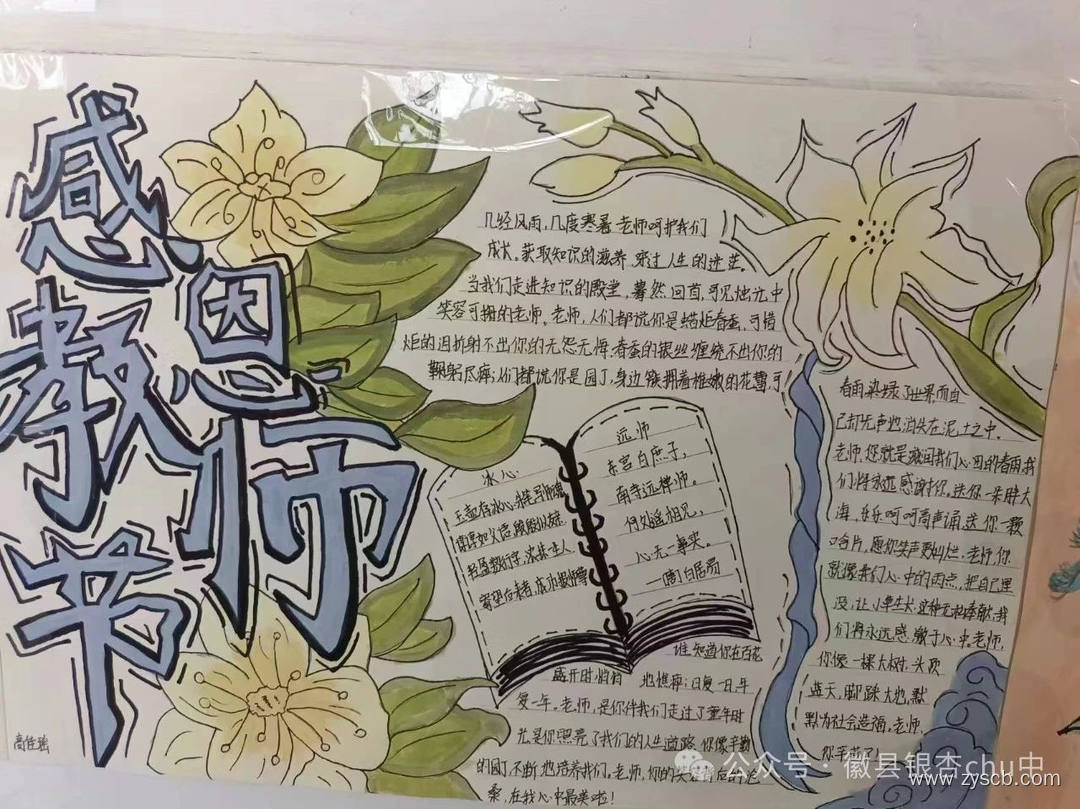 感恩
教师
节
几经风雨，几度寒暑 老师呵护我们
成长。获取知识的滋养，穿过人生的迷茫。
当我们走进知识的殿堂，蓦然回首可见烛光中
笑容可掬的老师。老师，人们都说你是蜡炬春蚕，可惜
炬的泪折射不出你的无怨无悔，春蚕的银丝缠绕不出你的
鞠躬尽瘁；人们都说你是园丁，身边簇拥着稚嫩的花蕾，可
谁知道你在百花
盛开时悄 地憔悴；日复一日，年
复一年。老师，是你伴我们走过了童年时
光是你照亮了我们的人生道路，你像辛勤
的园丁不断地培养我们。老师，你的
在我心中最美啦！
冰心
玉壶存冰心，朱笔写师魂
谆谆如父语，殷殷似友
轻盈数行字，浓抹一生人
寄望后来者，成功报师尊
远师
东宫白庶子，
南寺远禅师。
何处遥相见，
心无一事实。
一唐白居易
春雨染绿了世界而自
己却无声地消失在泥土之中。
老师，您就是滋润我们心田的春雨我
们将永远感谢你。送你一朵胖大
海，乐乐呵呵高声诵，送你一颗
含片，愿你笑声更灿烂。老师，你
就像我们心中的雨点，把自己埋
没，让小草生长，这种无私奉献，我
们将永远感激于心中。老师，
你像一棵大树，头顶
蓝天，脚踩大地，默
默为社会造福。老师，
你辛苦了！
公众号·徽县银杏chu中
www.zyscb.com